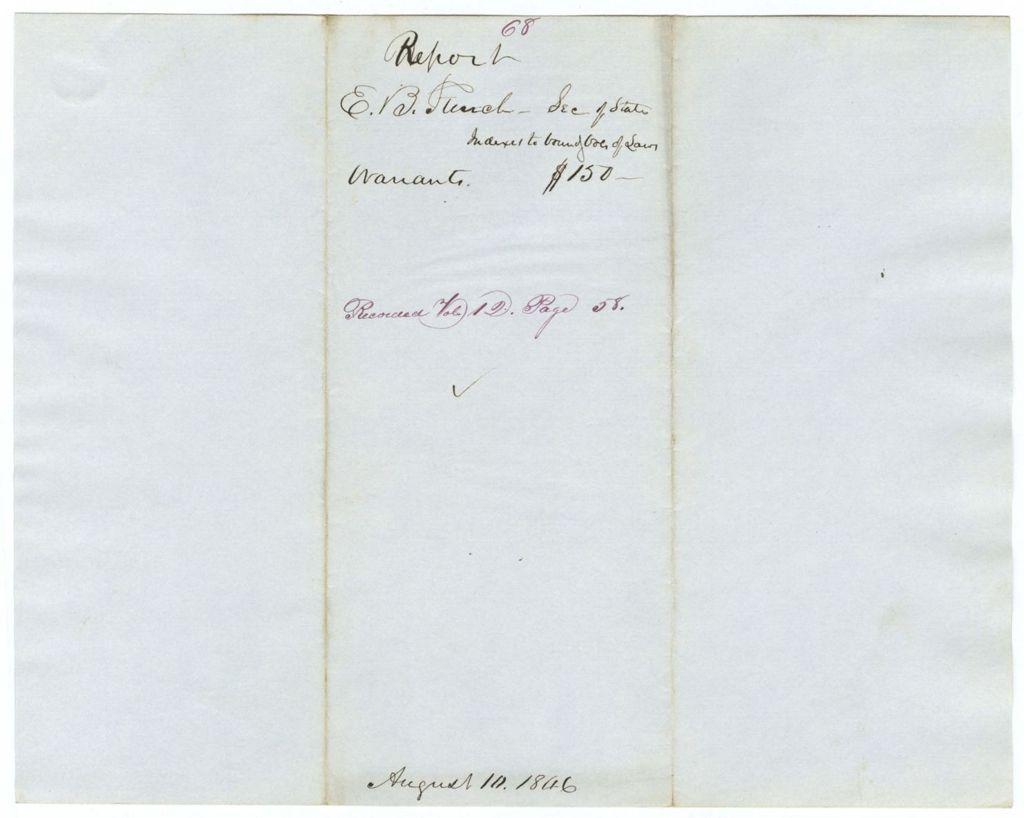 68
Report
E. B. French - Sec of State
Indexes to bound vols of Laws
Warrants. $150 -
Recorded Vol 12. Page 58.
August 10. 1846